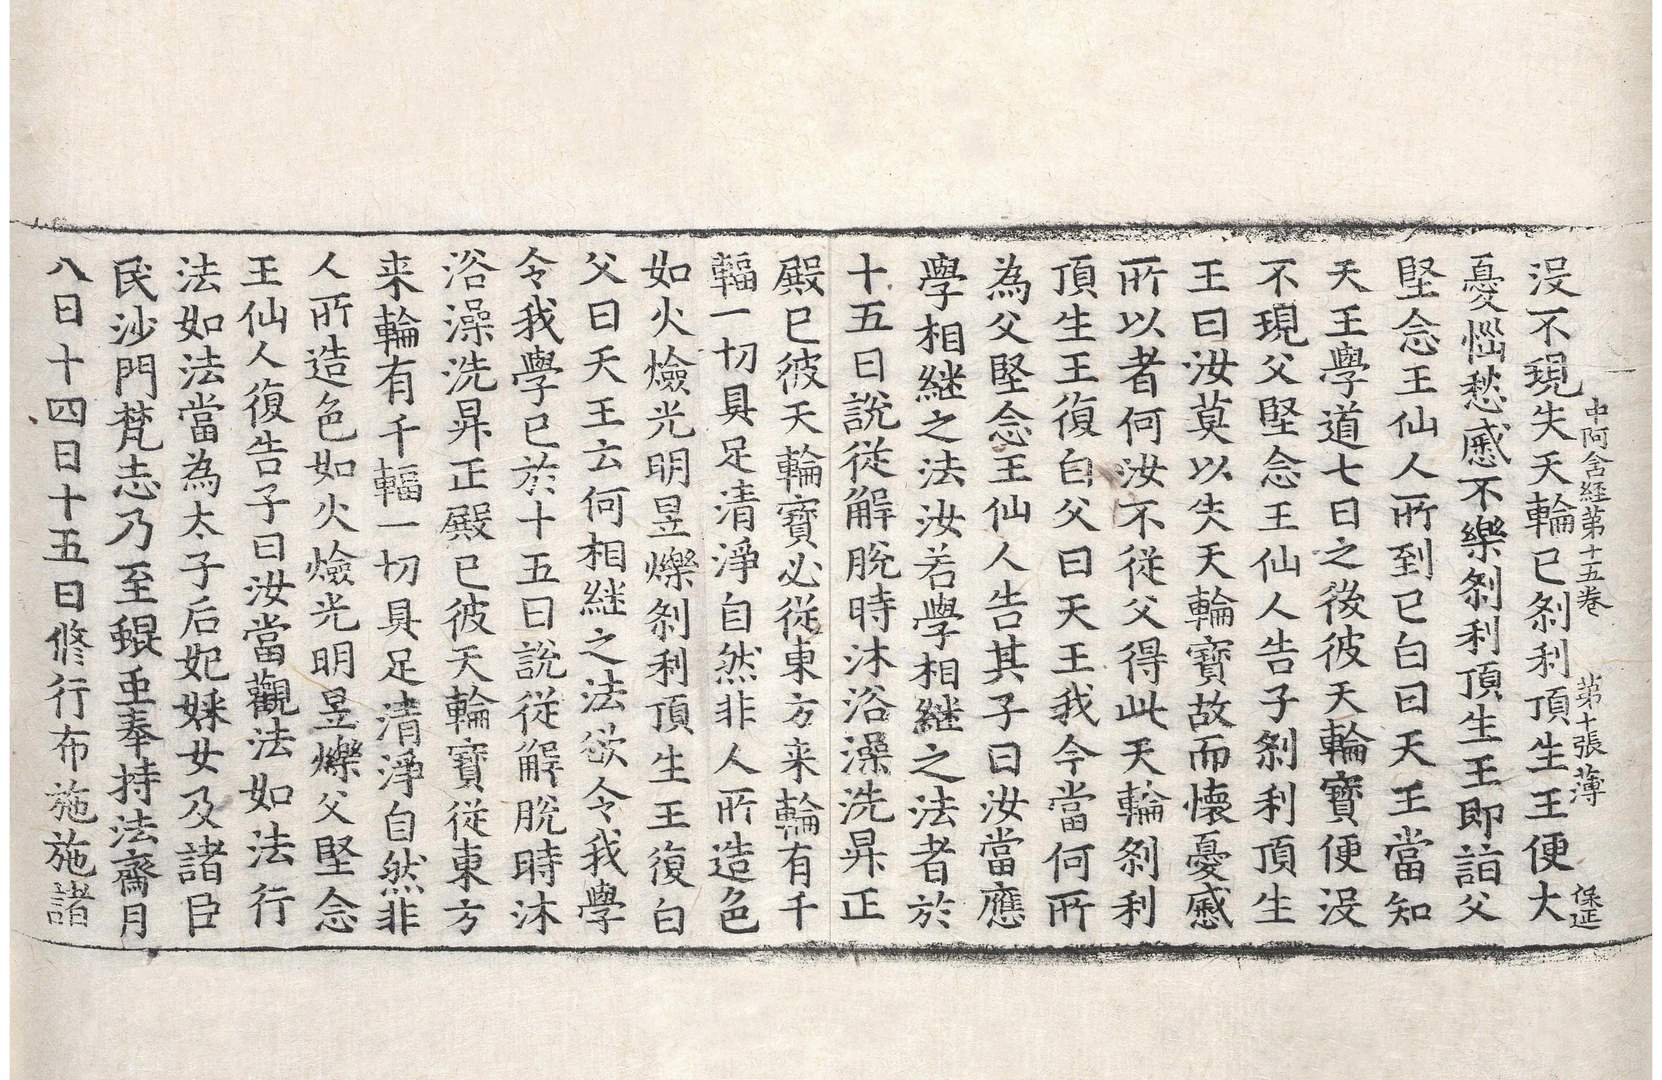 中阿含経第十五巻 第十張 薄 保延
没不現失天輪已刹利頂生王便大
憂惱愁慼不樂刹利頂生王即詣父
堅念王仙人所到已白曰天王當知
天王學道七日之後彼天輪寶便没
不現父堅念王仙人告子刹利頂生
王曰汝莫以失天輪寶故而懷憂慼
所以者何汝不從父得此天輪刹利
頂生王復白父曰天王我今當何所
為父堅念王仙人告其子曰汝當應
學相継之法汝若學相継之法者於
十五日說從解脫時沐浴澡洗昇正
殿已彼天輪寶必從東方来輪有千
輻一切具足清淨自然非人所造色
如火燄光明昱爍刹利頂生王復白
父曰天王云何相継之法欲令我學
令我學已於十五日說從解脫時沐
浴澡洗昇正殿已彼天輪寶從東方
来輪有千輻一切具足清淨自然非
人所造色如火燄光明昱爍父堅念
王仙人復告子曰汝當觀法如法行
法如法當為太子后妃婇女及諸臣
民沙門梵志乃至蜫䖝奉持法齋月
八日十四日十五日修行布施施諸